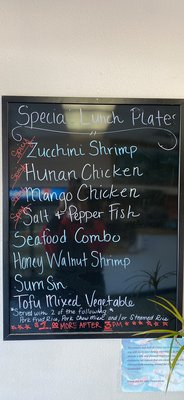 Special Lunch Plates
Spicy Zucchini Shrimp
Spicy Hunan Chicken
Spicy Mango Chicken
Spicy Salt & Pepper Fish
Seafood Combo
Honey Walnut Shrimp
Sum Sin
Tofu Mixed Vegetable
Served with 2 of the following
Pork Fried Rice, Pork Chow Mein and/or Steamed Rice
$1.00 MORE AFTER 3 PM